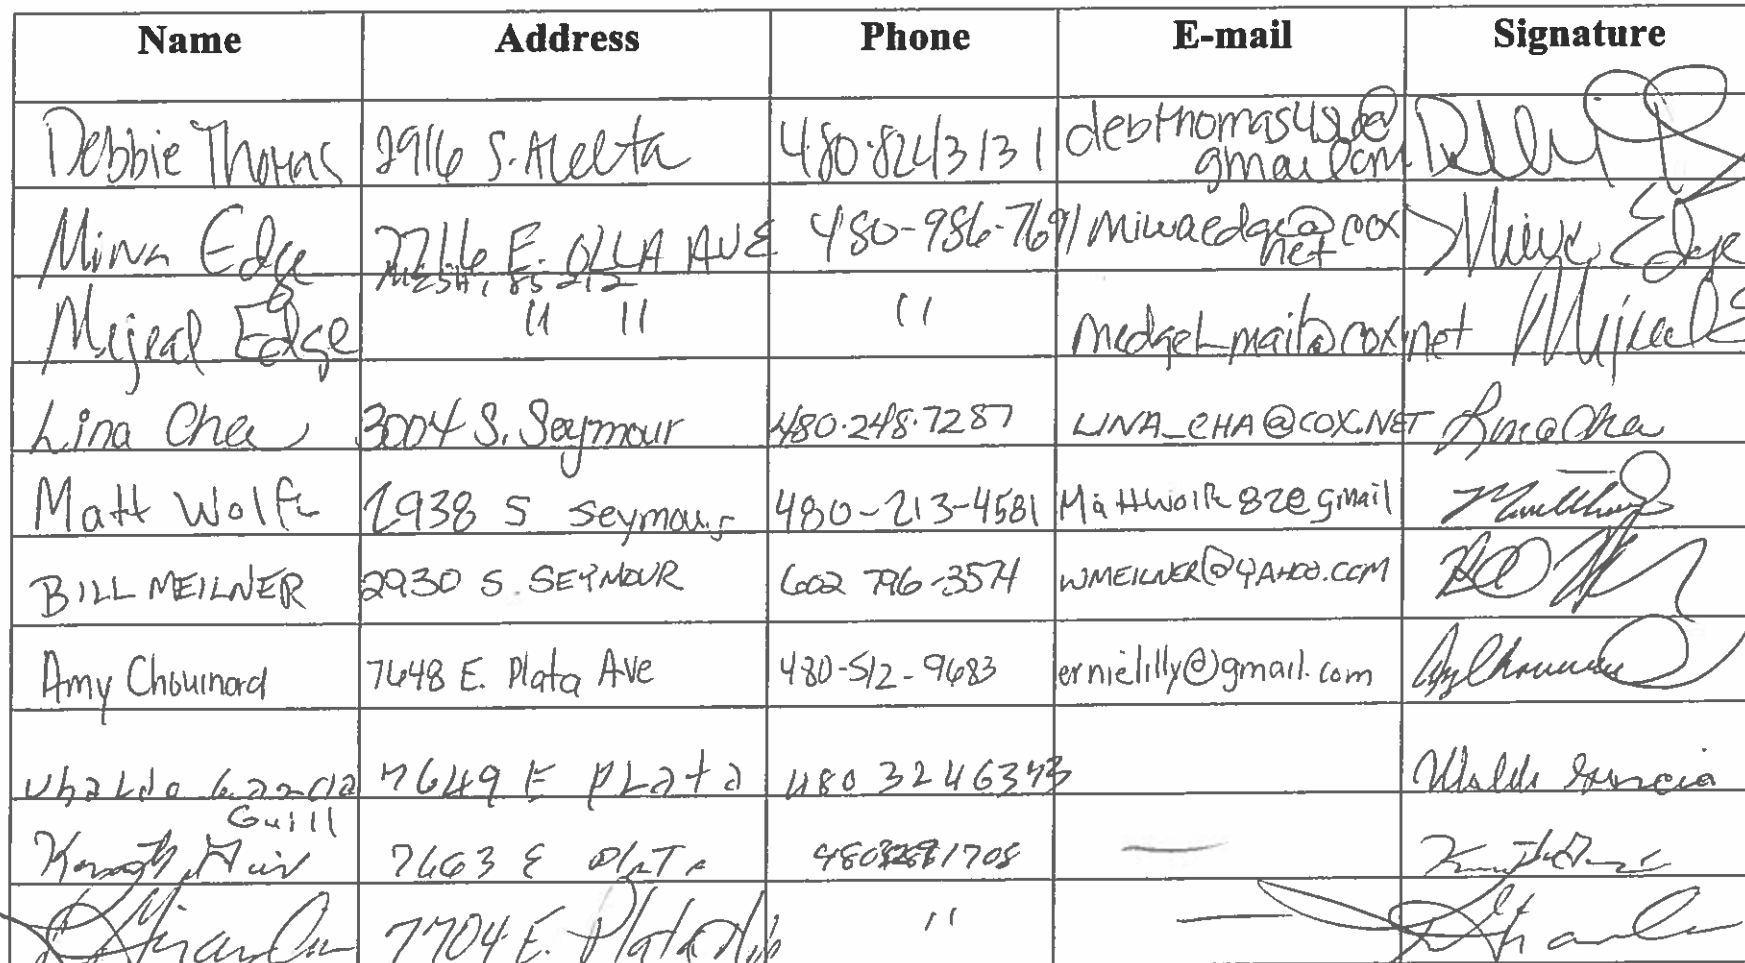 Name Address Phone E-mail Signature
Debbie Thomas 2916 S. 480-824-3131 debthomas482@
gmail.com
Mina Edge 7716 E. OLLA AVE 480-986-7691 minaedge@cox
net
MESA, 85212
Mijeal Edge " " " medge1_mail@cox.net Mijeal
Lina Cha 3004 S. Seymour 480.248.7287 LINA_CHA@COX.NET Lina Cha
Matt Wolfe 2938 S Seymour 480-213-4581 Mattwolfe82@gmail
BILL MEILNER 2930 S. SEYMOUR 602 796-3574 WMEILNER@YAHOO.COM
Amy Chouinard 7648 E. Plata Ave 480-512-9683 ernielilly@gmail.com
Ubaldo Garcia 7649 E PLata 480 3246343 Ubaldo Garcia
Kenneth 7663 E PlaTa —
7704 E. Plata " —